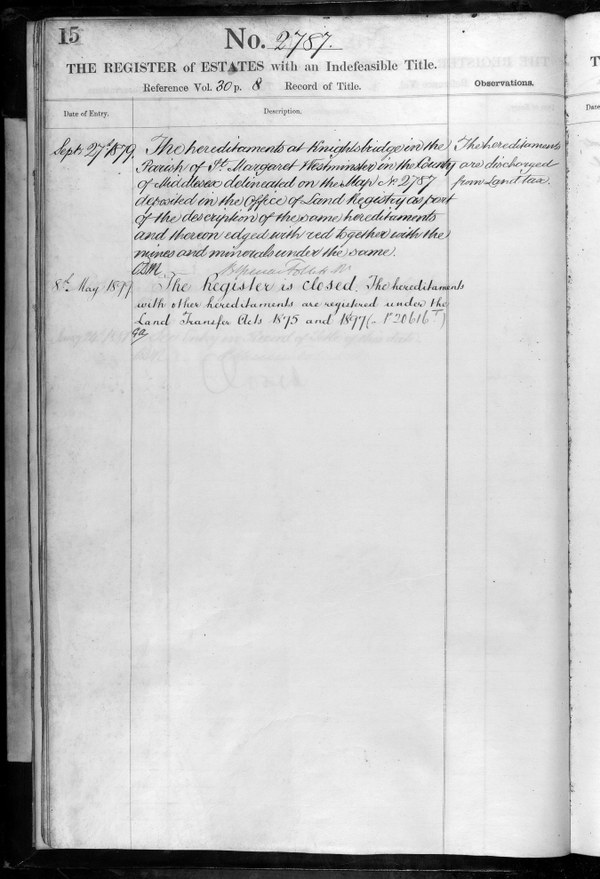 15
No. 2787.
THE REGISTER of ESTATES with an Indefeasible Title.
Reference Vol. 30 p. 8 Record of Title.
Observations.
Date of Entry.
Description.
Sept. 27th 1879.
The hereditaments at Knightsbridge in the
Parish of St. Margaret Westminster in the County
of Middlesex delineated on the Map No. 2787
deposited in the Office of Land Registry as part
of the description of the same hereditaments
and thereon edged with red together with the
mines and minerals under the same.
The hereditaments
are discharged
from Land tax.
8th May 1899
The Register is closed. The hereditaments
with other hereditaments are registered under the
Land Transfer Acts 1875 and 1897 (
20616